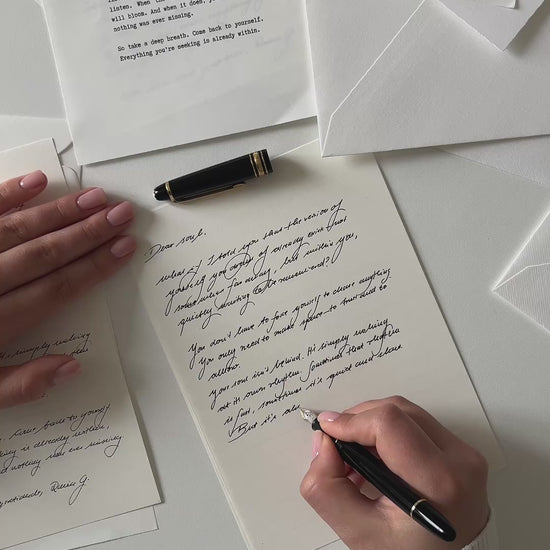 listen. When the
will bloom. And when it does, yo
nothing was ever missing.
So take a deep breath. Come back to yourself.
Everything you're seeking is already within.
Dear soul,
what if I told you that the version of
yourself you dream of already exist? Not
somewhere far away, but within you,
quietly waiting to be remembered?
You don't have to force yourself to chase anything
You only need to make space to trust and to
allow.
your soul isn't behind. It's simply walking
at its own rhythm. Sometimes that rhythm
is fast, sometimes it's quiet and slow.
But it's al
simply walking
come back to yourself
is already within,
nothing was ever missing